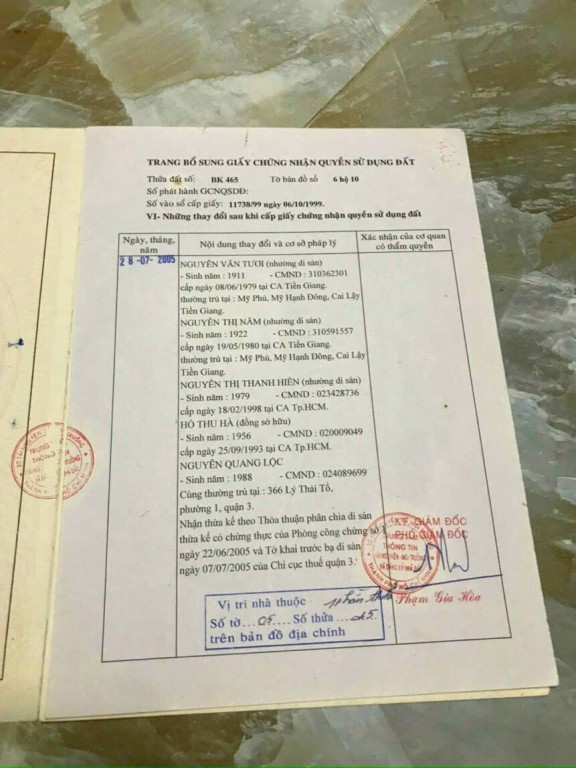 TRANG BỔ SUNG GIẤY CHỨNG NHẬN QUYỀN SỬ DỤNG ĐẤT
Thửa đất số: BK 465 Tờ bản đồ số 6 hộ 10
Số phát hành GCNQSDĐ:
Số vào sổ cấp giấy: 11738/99 ngày 06/10/1999.
VI- Những thay đổi sau khi cấp giấy chứng nhận quyền sử dụng đất
Ngày, tháng, năm
Nội dung thay đổi và cơ sở pháp lý
Xác nhận của cơ quan có thẩm quyền
28-07-2005
NGUYỄN VĂN TƯƠI (nhường di sản)
- Sinh năm : 1911 - CMND : 310362301
cấp ngày 08/06/1979 tại CA Tiền Giang.
thường trú tại : Mỹ Phú, Mỹ Hạnh Đông, Cai Lậy
Tiền Giang.
NGUYỄN THỊ NĂM (nhường di sản)
- Sinh năm : 1922 - CMND : 310591557
cấp ngày 19/05/1980 tại CA Tiền Giang.
thường trú tại : Mỹ Phú, Mỹ Hạnh Đông, Cai Lậy
Tiền Giang.
NGUYỄN THỊ THANH HIÊN (nhường di sản)
- Sinh năm : 1979 - CMND : 023428736
cấp ngày 18/02/1998 tại CA Tp.HCM.
HỒ THU HÀ (đồng sở hữu)
- Sinh năm : 1956 - CMND : 020009049
cấp ngày 25/09/1993 tại CA Tp.HCM.
NGUYỄN QUANG LỘC
- Sinh năm : 1988 - CMND : 024089699
Cùng thường trú tại : 366 Lý Thái Tổ,
phường 1, quận 3.
Nhận thừa kế theo Thỏa thuận phân chia di sản
thừa kế có chứng thực của Phòng công chứng số 1
ngày 22/06/2005 và Tờ khai trước bạ di sản
ngày 07/07/2005 của Chi cục thuế quận 3.
KT. GIÁM ĐỐC
PHÓ GIÁM ĐỐC
THÔNG TIN
Phạm Gia Hòa
Vị trí nhà thuộc phần thửa
Số tờ ..05.... Số thửa ...25.
trên bản đồ địa chính
TRUNG
THÔNG TIN